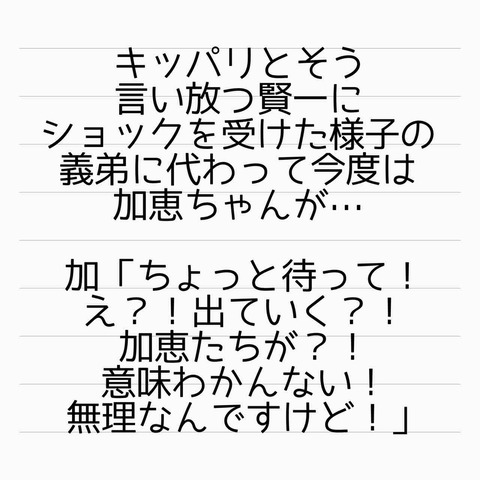 キッパリとそう
言い放つ賢一に
ショックを受けた様子の
義弟に代わって今度は
加恵ちゃんが…
加「ちょっと待って！
え？！出ていく？！
加恵たちが？！
意味わかんない！
無理なんですけど！」